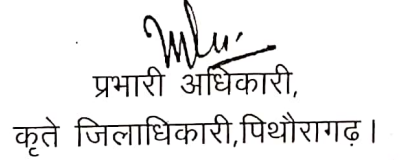 प्रभारी अधिकारी,
कृते जिलाधिकारी,पिथौरागढ़।